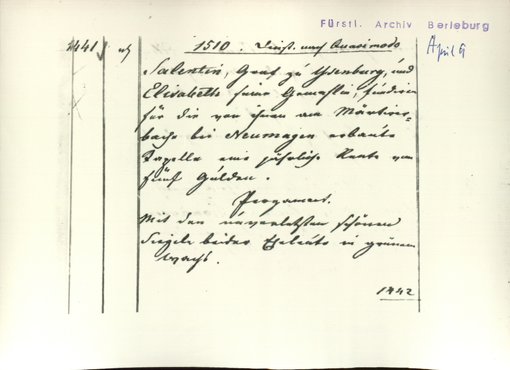 Fürstl. Archiv Berleburg
1510. Dienst. nach Quasimodo
April 9
2441
Salentin, Graf zu Isenburg, und
Elisabeth seine Gemahlin, fundiren
für die von ihnen am Märtirer-
bache bei Neumagen erbaute
Kapelle eine jährliche Rente von
fünf Gulden.
Pergament.
Mit den unverletzten schönen
Siegeln beider Eheleute in grünem
Wachs.
1442